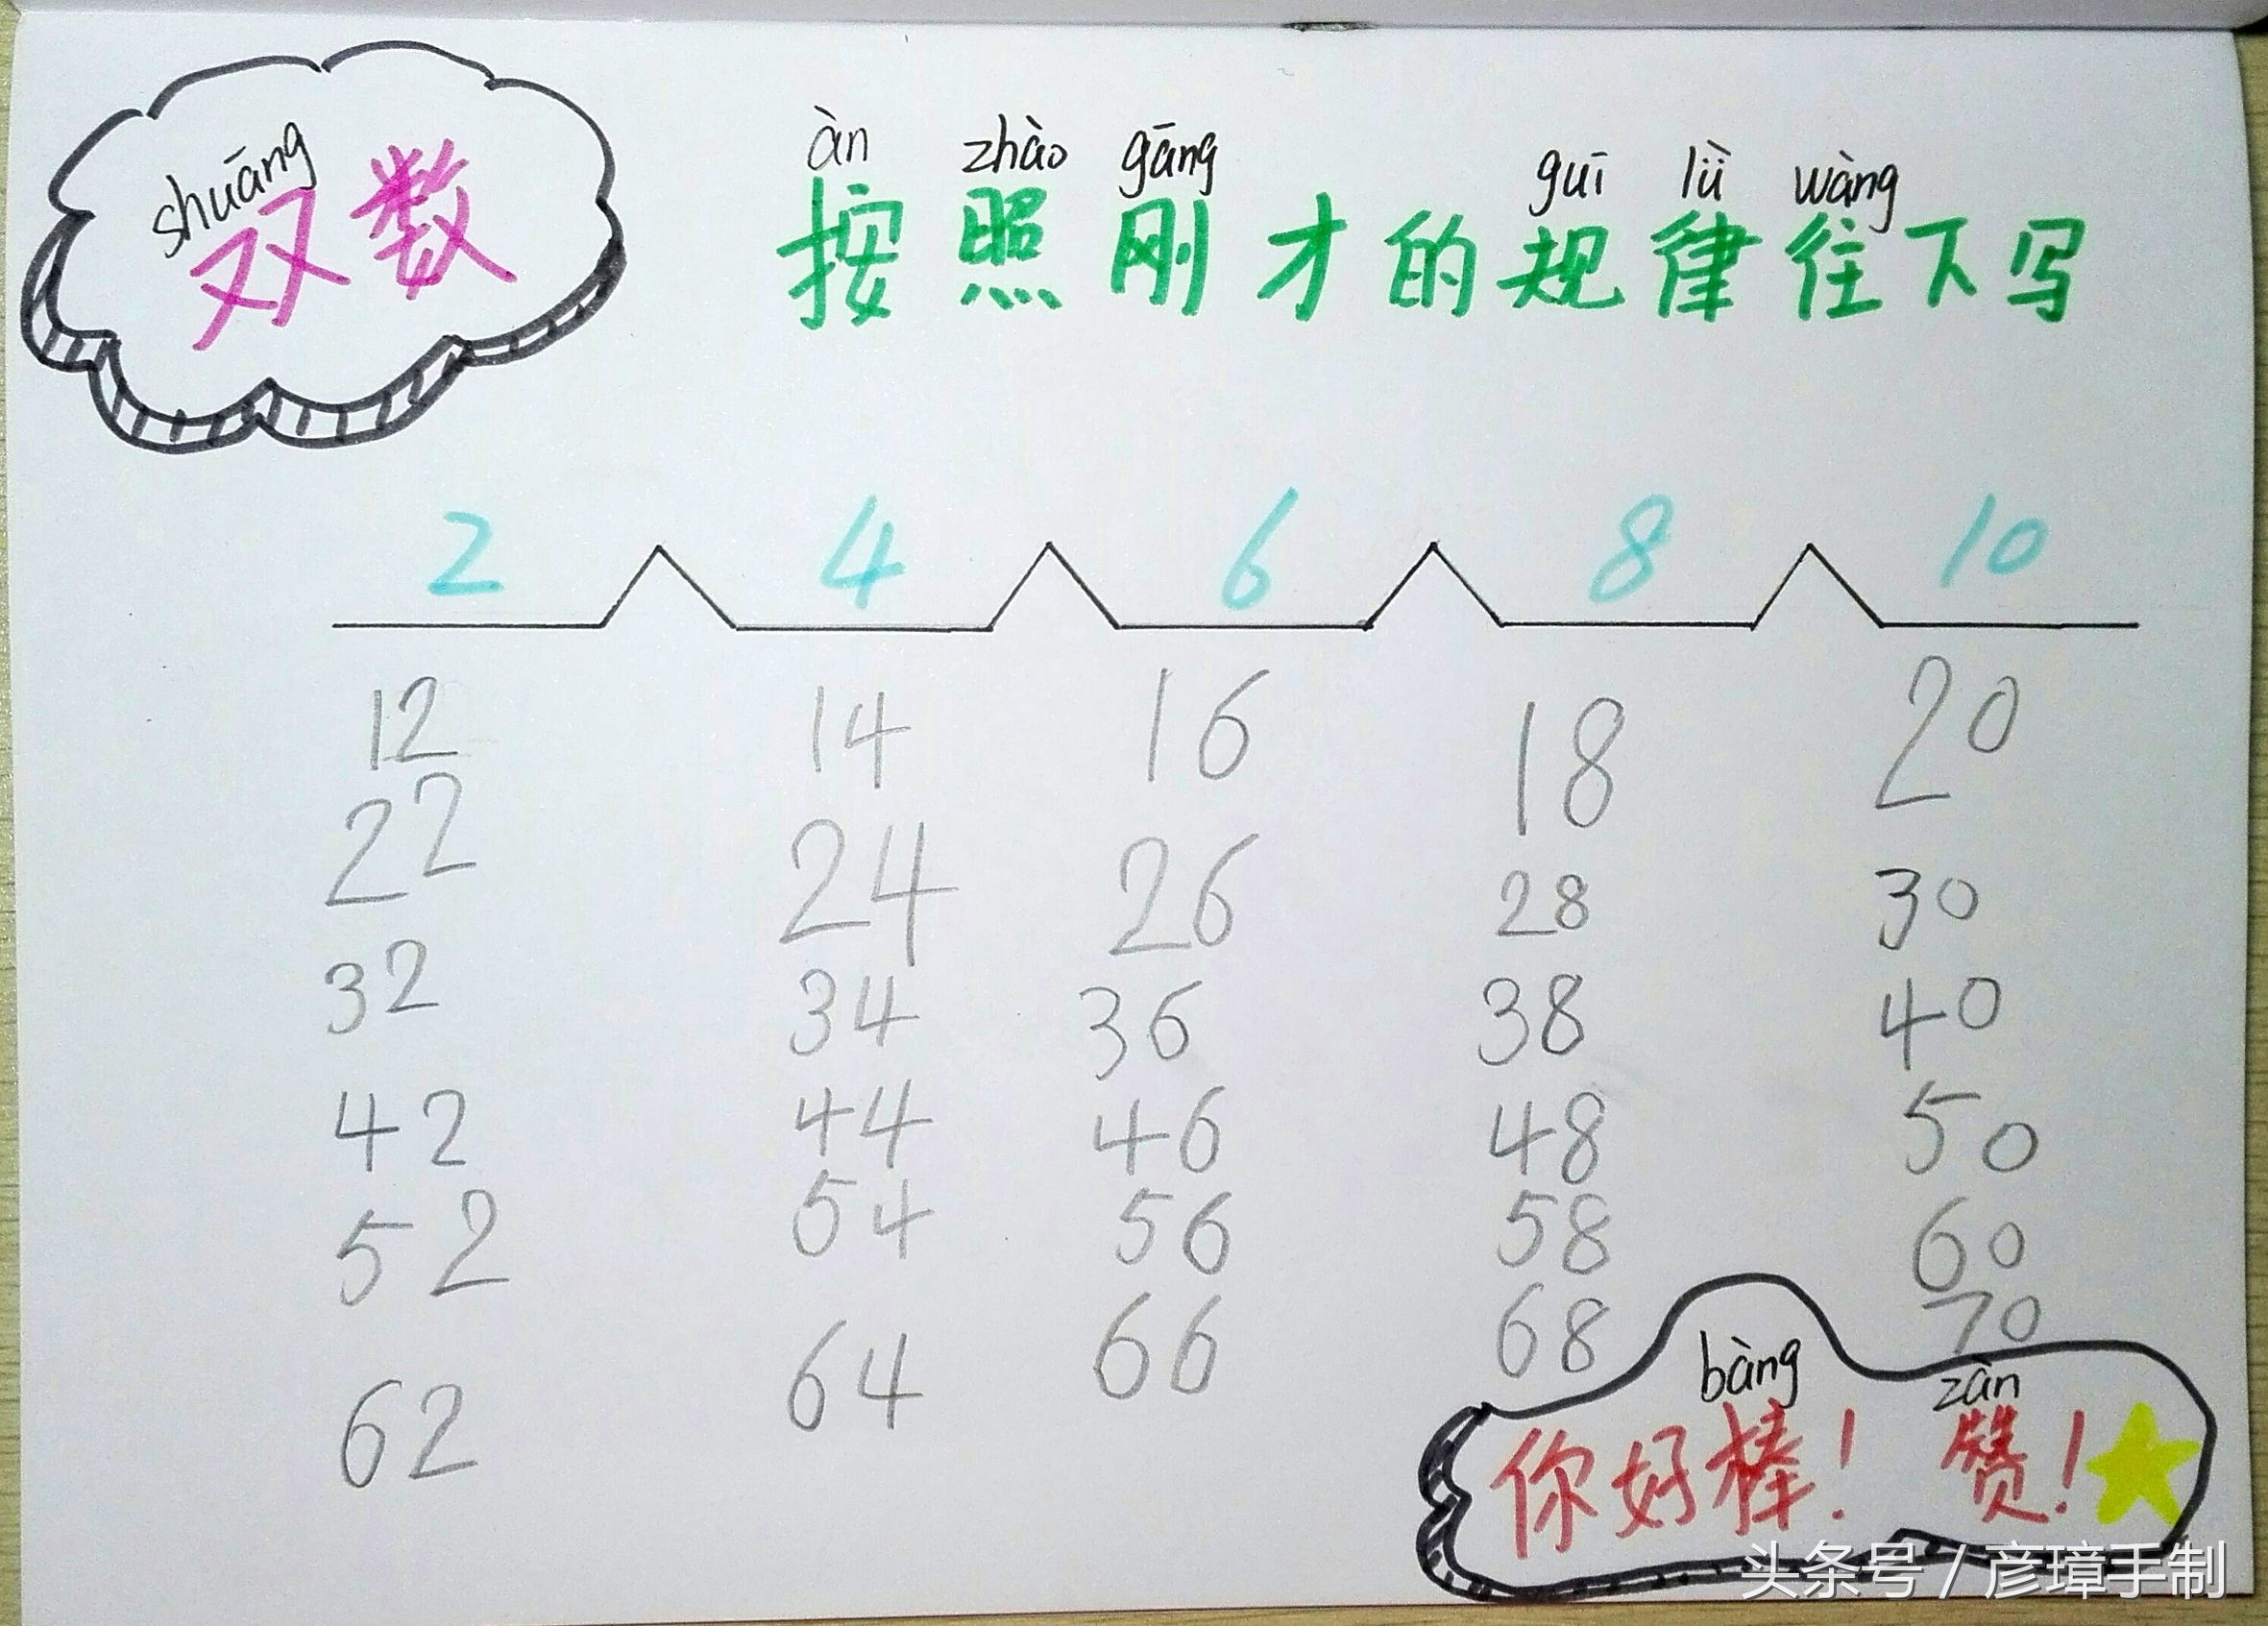 shuāng
双数
àn zhào gāng guī lǜ wàng
按照刚才的规律往下写
2 4 6 8 10
12 14 16 18 20
22 24 26 28 30
32 34 36 38 40
42 44 46 48 50
52 54 56 58 60
62 64 66 68 70
bàng zàn
你好棒！ 赞！
头条号 / 彦璋手制